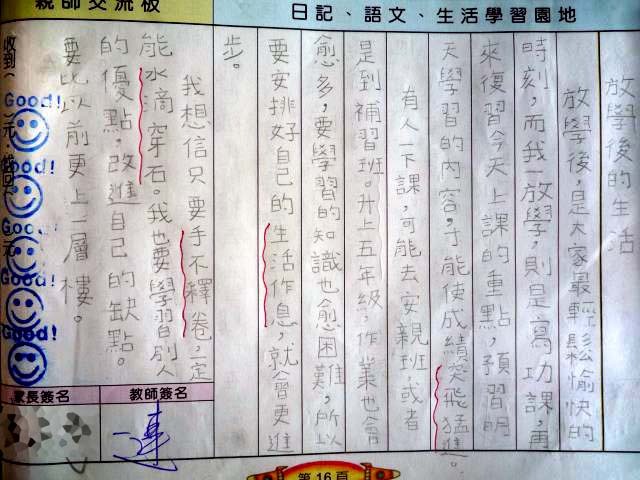 親師交流板
日記、語文、生活學習園地
放學後的生活
放學後，是大家最輕鬆愉快的
時刻，而我一放學，則是寫功課，再
來復習今天上課的重點，預習明
天學習的內容，才能使成績突飛猛進。
有人一下課，可能去安親班，或者
是到補習班。升上五年級，作業也會
愈多，要學習的知識也愈困難，所以
要安排好自己的生活作息，就會更進
步。
我想信只要手不釋卷，一定
能水滴穿石。我也要學習別人
的優點，改進自己的缺點。
要比以前更上一層樓。
收到
元
Good!
Good!
Good!
Good!
Good!
家長簽名
教師簽名
連
第16頁